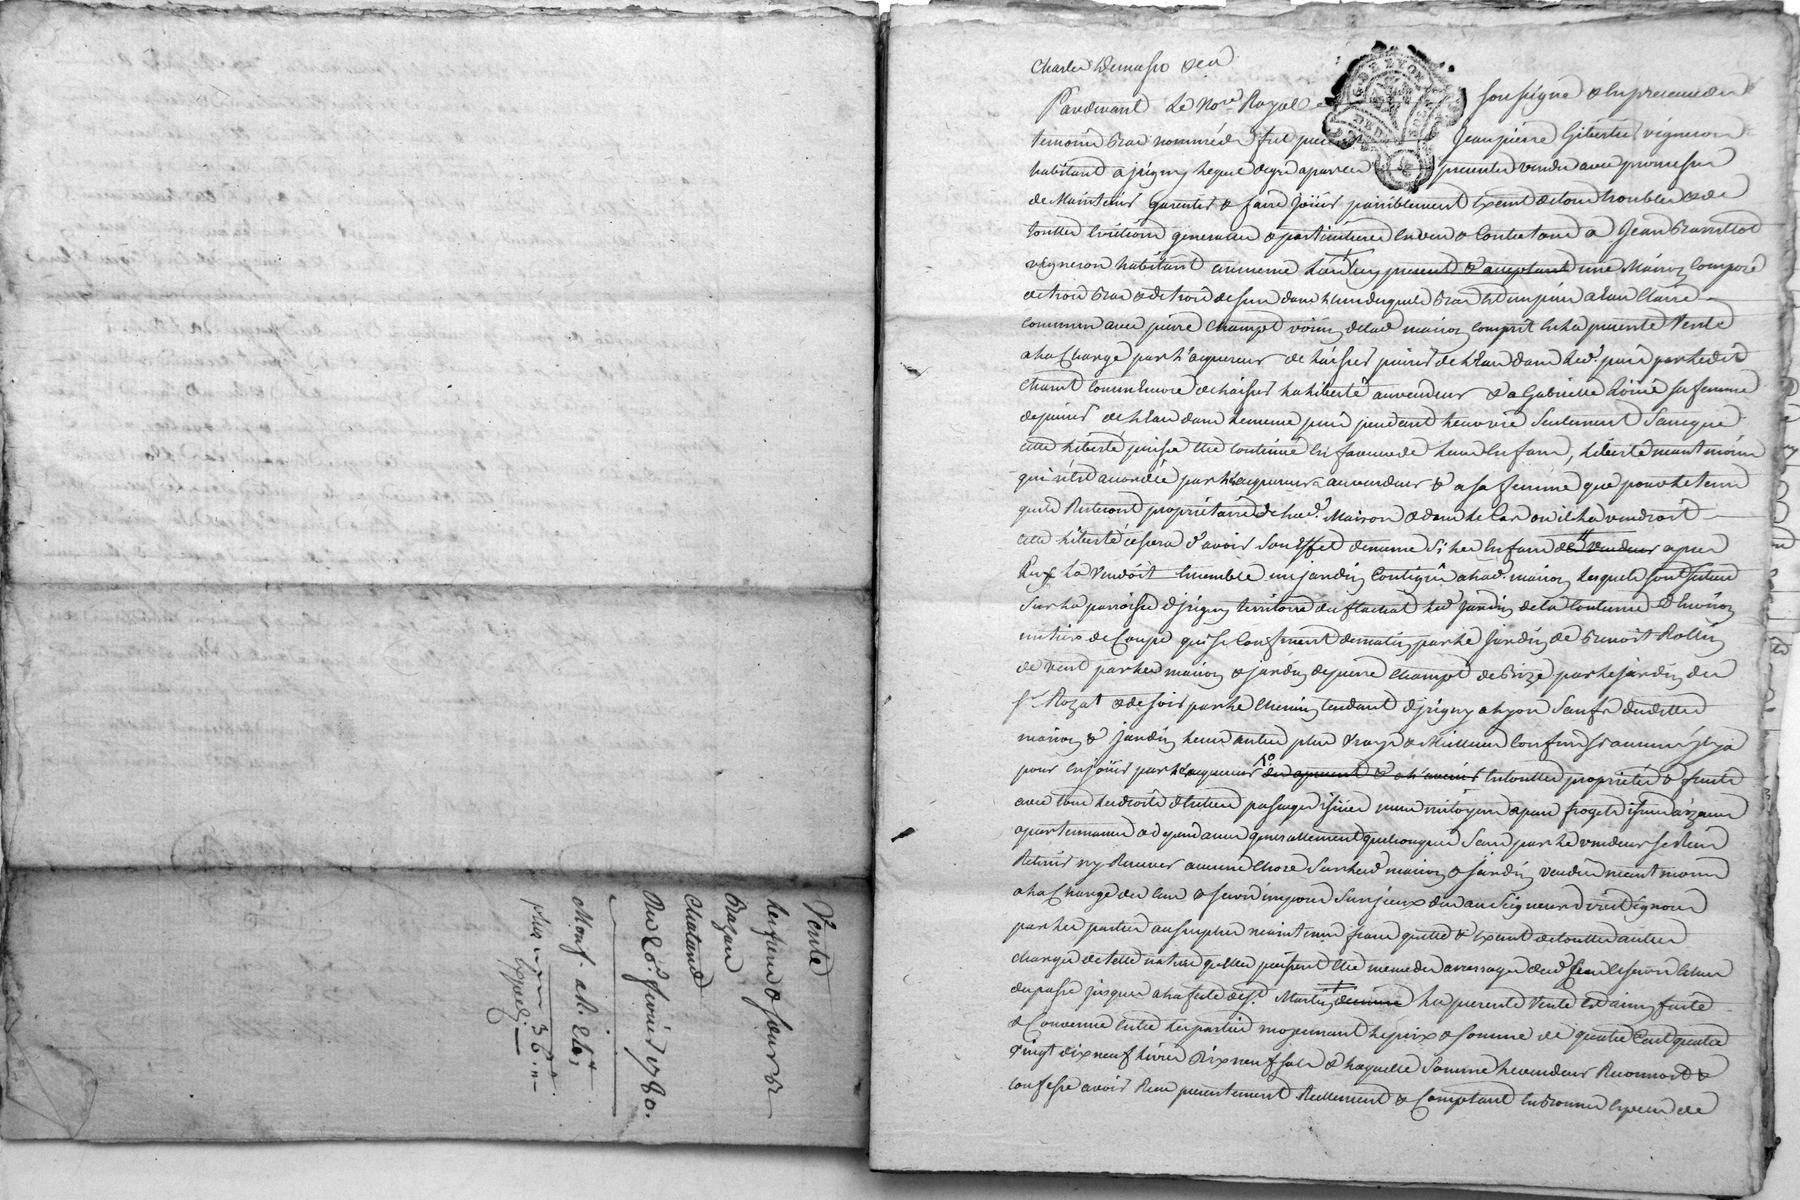 Vente
les freres & soeurs
Chatanod
Du 26e fevrier 1780.
Par devant Le Nore Royal soussigné & En presence des
temoins bas nommés fut present Jean pierre Gibertier vigneron
habitant a jrigny lequel de gré a par ces presentes vendu avec promesse
de Maintenir garentir & faire Joüir paisiblement Exempt de tous troubles & de
touttes Evictions generalles & particulieres Envers & Contre tous a Jean
vigneron habitant au meme lieu present & acceptant une Maison Composé
de trois bas & de trois dessus dans l'un desquels bas Est un puis a Eau Claire
commun avec pierre Champt voisin de lad maison compris En la presente Vente
a la Charge par l'aquereur de laisser puiser de l'Eau dans led. puis par ledit
Champt Comm'encore de laisser la liberté au vendeur & a Gabrielle sa femme
de puiser de l'Eau dans le meme puis pendant leur vie Seulement Sans que
cette liberté puisse Etre Continué En faveur de leurs Enfans, liberté neantmoins
qui n'Est accordée par l'aquereur au vendeur & a sa femme que pour le tems
qu'ils Resteront propriétaires de lad. Maison & dans le Cas ou il la vendroit
cette liberté cessera d'avoir Son Effet de meme Si les Enfans du vendeur apres
Eux La Vendoit Ensemble un jardin Contigû a lad. maison lesquels sont Situés
Sur la parroisse d'jrigny territoire du flachat led. Jardin de la Contenue d'Environ
un tiers de Coupé qui se Confinent de matin par le Jardin de Benoit Rollin
de vent par les maison & jardin de pierre Champt de Bize par le jardin du
Sr. Rozat & de soir par le Chemin tendant d'jrigny a Lyon Sauf desdittes
maison & Jardin leurs autres plus Vrays & Meilleurs Confins si aucuns jl y a
pour En joüir par l'aquereur des apresent & a l'avenir En touttes proprietés & fruits
avec tous les droits d'Entrées passages
apartenances & dependances generallement quelconques Sans par le vendeur Se Rien
Retenir ny Reserver aucune Chose Sur lesd. maison & Jardin vendus neantmoins
a la Charge des Cens & servis imposés Sur jceux dus au Seigneur direct ignorés
par les parties au surplus maintenus francs quittes & Exempt de touttes autres
charges de telle nature qu'elles puissent Etre meme des arrerages desd. Cens & servis Echus
du passé jusques a la fete de St. Martin derniere La presente Vente Est ainsy faitte
& Convenue Entre les parties moyennant le prix & Somme de quatre Cent quatre
Vingt dix neuf livres dix neuf sols & laquelle Somme le vendeur Reconnoit &
confesse avoir Reçu presentement Reellement & Comptant En bonnes Especes de